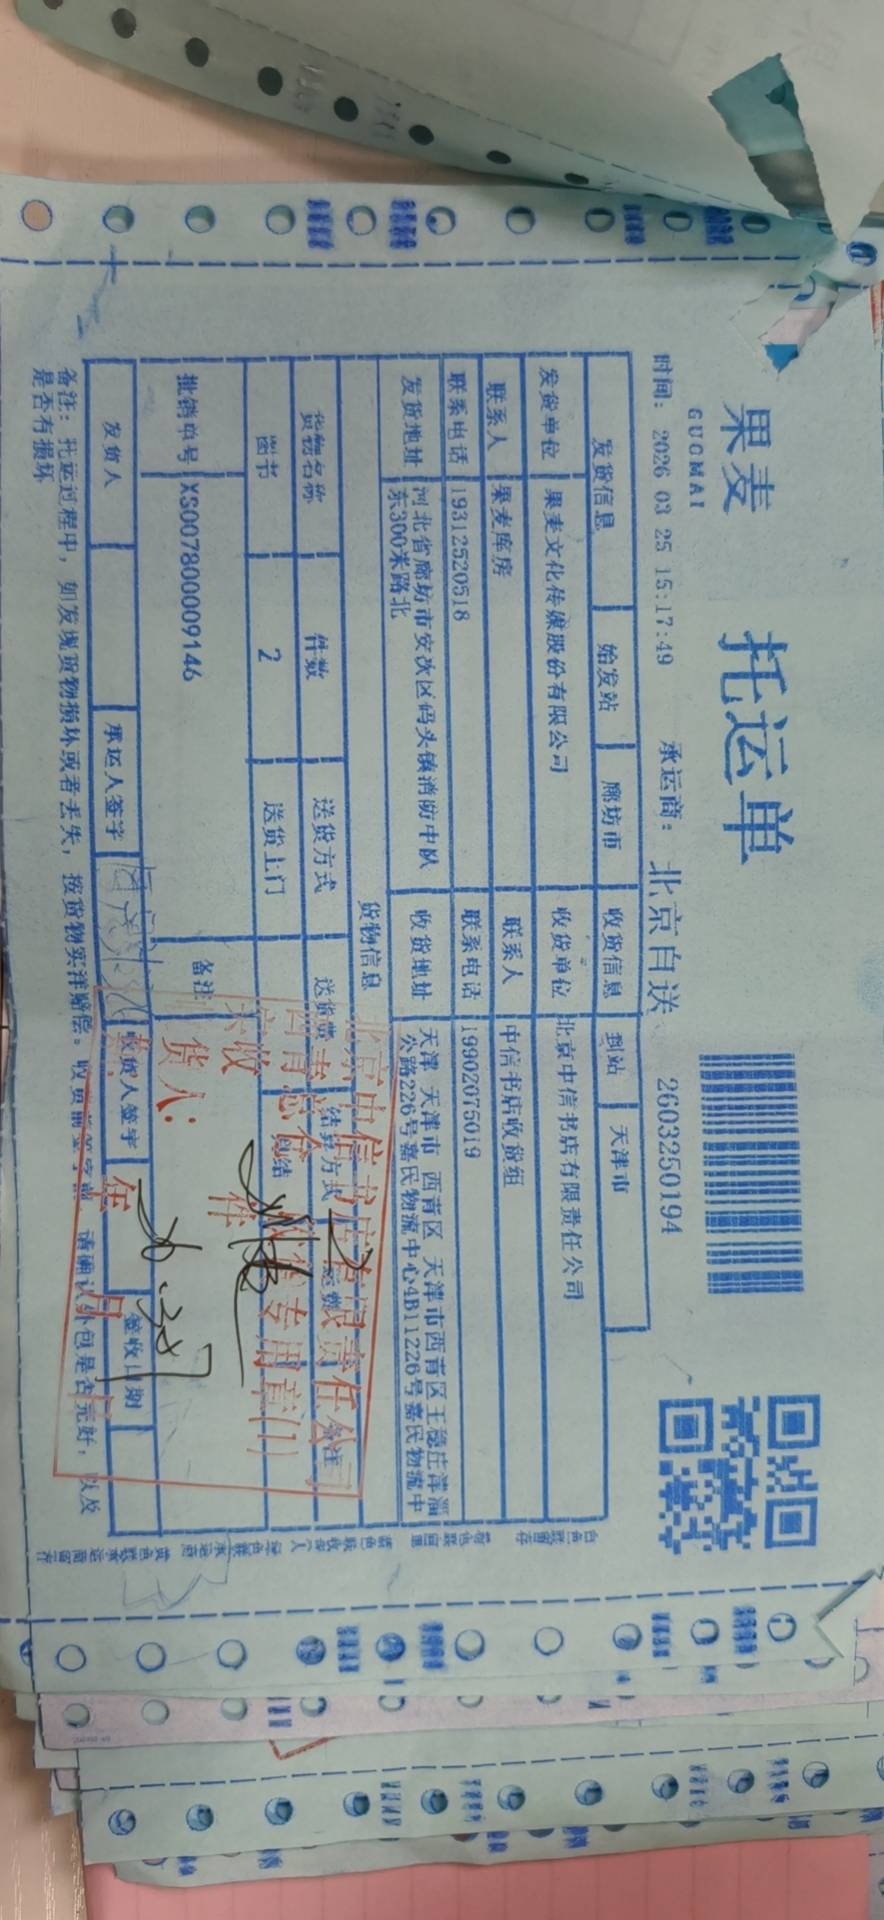 果麦
GUOMAI
托运单
时间: 2026 03 25 15:17:49
承运商: 北京自送
2603250194
发货信息 始发站 廊坊市 收货信息 到站 天津市
发货单位 果麦文化传媒股份有限公司 收货单位 北京中信书店有限责任公司
联系人 果麦库房 联系人 中信书店收货组
联系电话 19312520518 联系电话 19902075019
发货地址 河北省廊坊市安次区码头镇消防中队
东300米路北
收货地址 天津 天津市 西青区 天津市西青区王稳庄津淄
公路226号嘉民物流中心4B11226号嘉民物流中
货物信息
货物名称 件数 送货方式 送货费 结算方式 备注
图书 2 送货上门
批销单号 XS007800009146 备注
发货人 承运人签字 收货人签字 签收日期
备注: 托运过程中, 如发现货物损坏或者丢失, 按货物实洋赔偿。 请确认外包是否完好, 以及
是否有损坏
北京中信书店有限责任公司
收货专用章(1)
实收 件
货人:
年 月